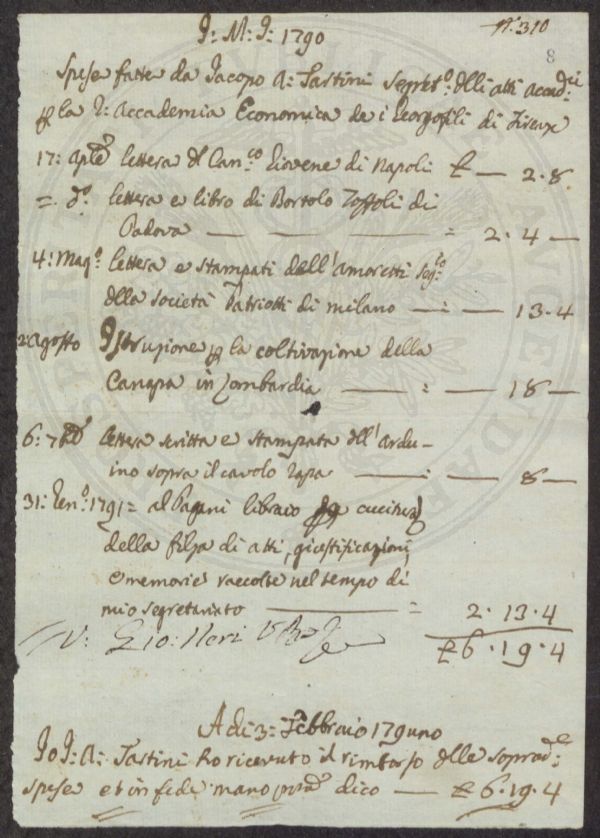 J: M: J: 1790
N.º 310
8
Spese fatte da Jacopo A: Tartini Segret.º dlli atti Accad.ci
p la I: Accademia Economica de i Georgofili di Firenze
17: Aple lettera dl Can.co Giovene di Napoli £ — 2.8
= d.º lettera e libro di Bortolo Toffoli di
Padova — — — = 2.4 —
4: Mag.º lettera e stampati dell'Amoretti Seg.rio
dlla Società Patriotti di Milano — : — 13.4
2 Agosto Istruzione p la coltivazione della
Canapa in Lombardia — : — 18 —
6: 7bre lettera scritta e stampata dll'Ardu-
ino sopra il cavolo rapa — : — 8 —
31: Gen.º 1791 = al Pagani libraio p cucitura
della filza di atti, giustificazioni,
e memorie raccolte nel tempo di
mio segretariato — = 2.13.4
V: Gio: Neri £ 6.19.4
A di 3: Febbraio 179uno
Io J: A: Tartini ho ricevuto il rimborso dlle soprad.e
spese et in fede mano pp.a dico — £ 6.19.4